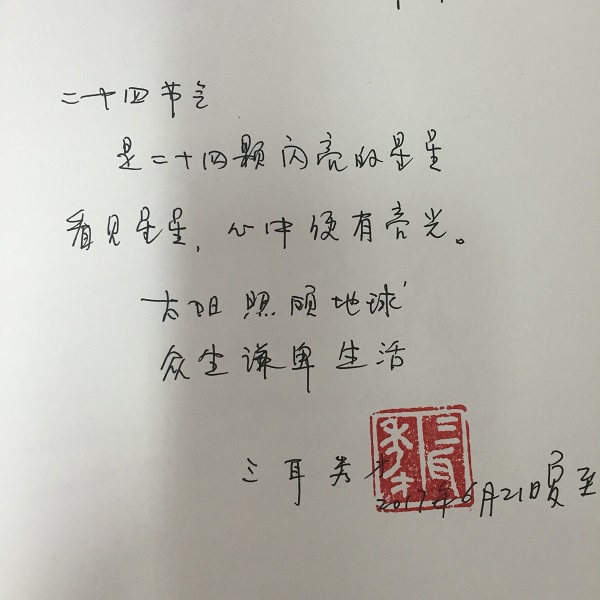 二十四节气
是二十四颗闪亮的星星
看见星星,心中便有亮光。
太阳照顾地球
众生谦卑生活
三耳秀才
2017年6月21日夏至